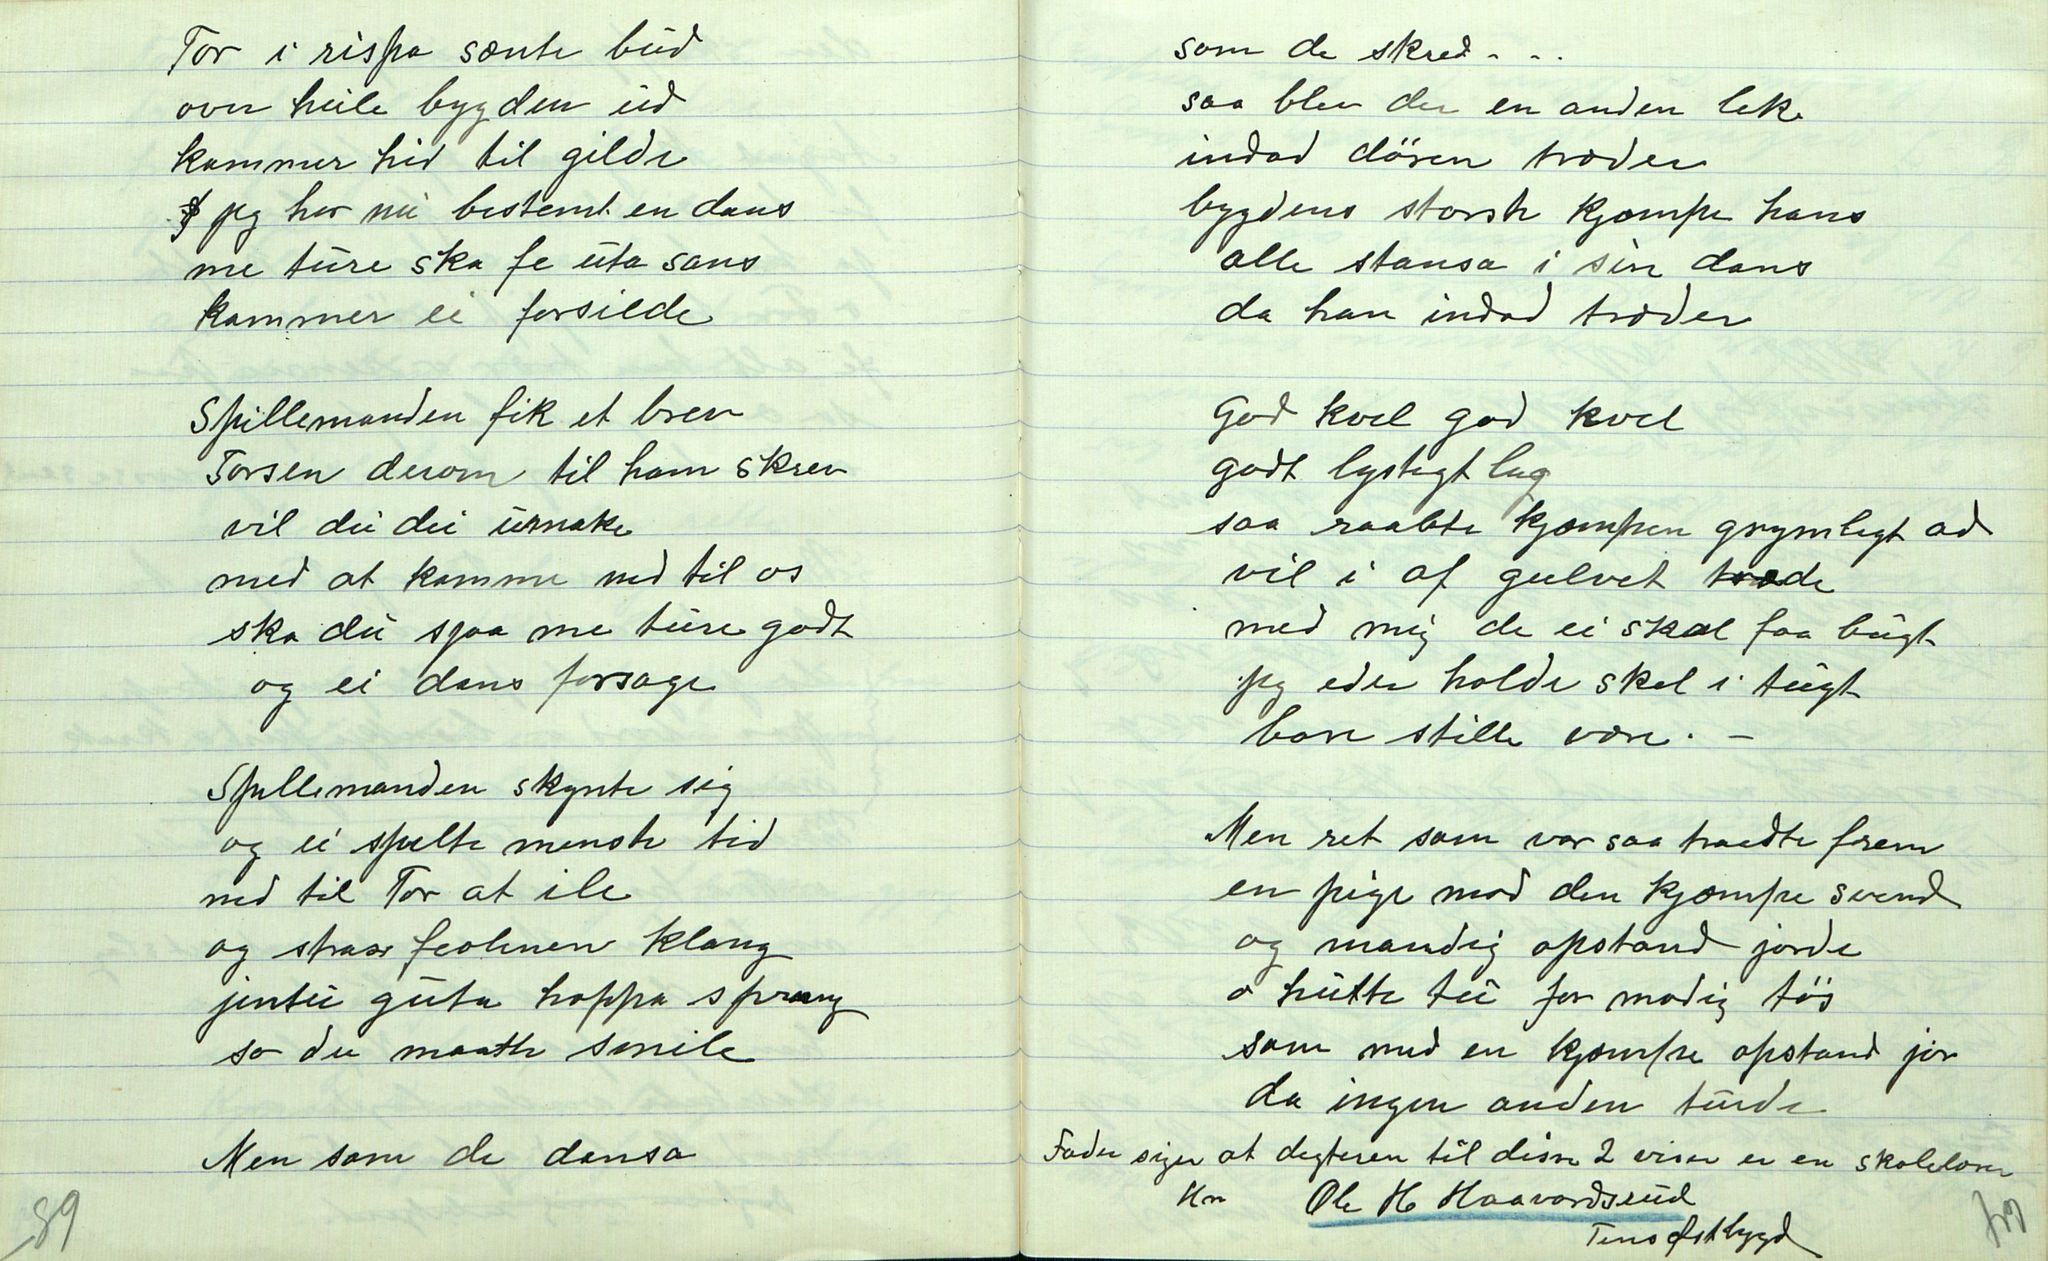 Tor i rispa sænte bud
over heile bygden ud
kommer hid til gilde
jeg har nu bestemt en dans
me ture ska fe uta sans
kommer ei forsilde
Spillemanden fik et brev
Torsen derom til ham skrev
vil du dei umake
med at komme ned til os
ska du spaa me ture godt
og ei dans forsage
Spillemanden skynte sig
og ei spilte menste tid
ned til Tor at ile
og strax feolinen klang
jentu guta hoppa sprang
so du maatte smile
Men som de dansa
89
som de skred - - .
saa blev der en anden lek
indad dören træder
bygdens storste kjæmpe hans
alle stansa i sin dans
da han indad træder
God kvel god kvel
godt lystigt lag
saa raabte kjæmpen grymligt ad
vil i af gulvet træde
med mig de ei skal faa bugt
jeg eder holde skal i tugt
bare stille være. -
Men ret som var saa traadte frem
en pige mod den kjæmpe svend
og mandig opstand jorde
o hutte tu for modig tös
som med en kjæmpe opstand jor
da ingen anden turde
Fader siger at degteren til disse 2 viser er en skolelærer
Hr Ole H Haavardsrud
Tens Østbygd